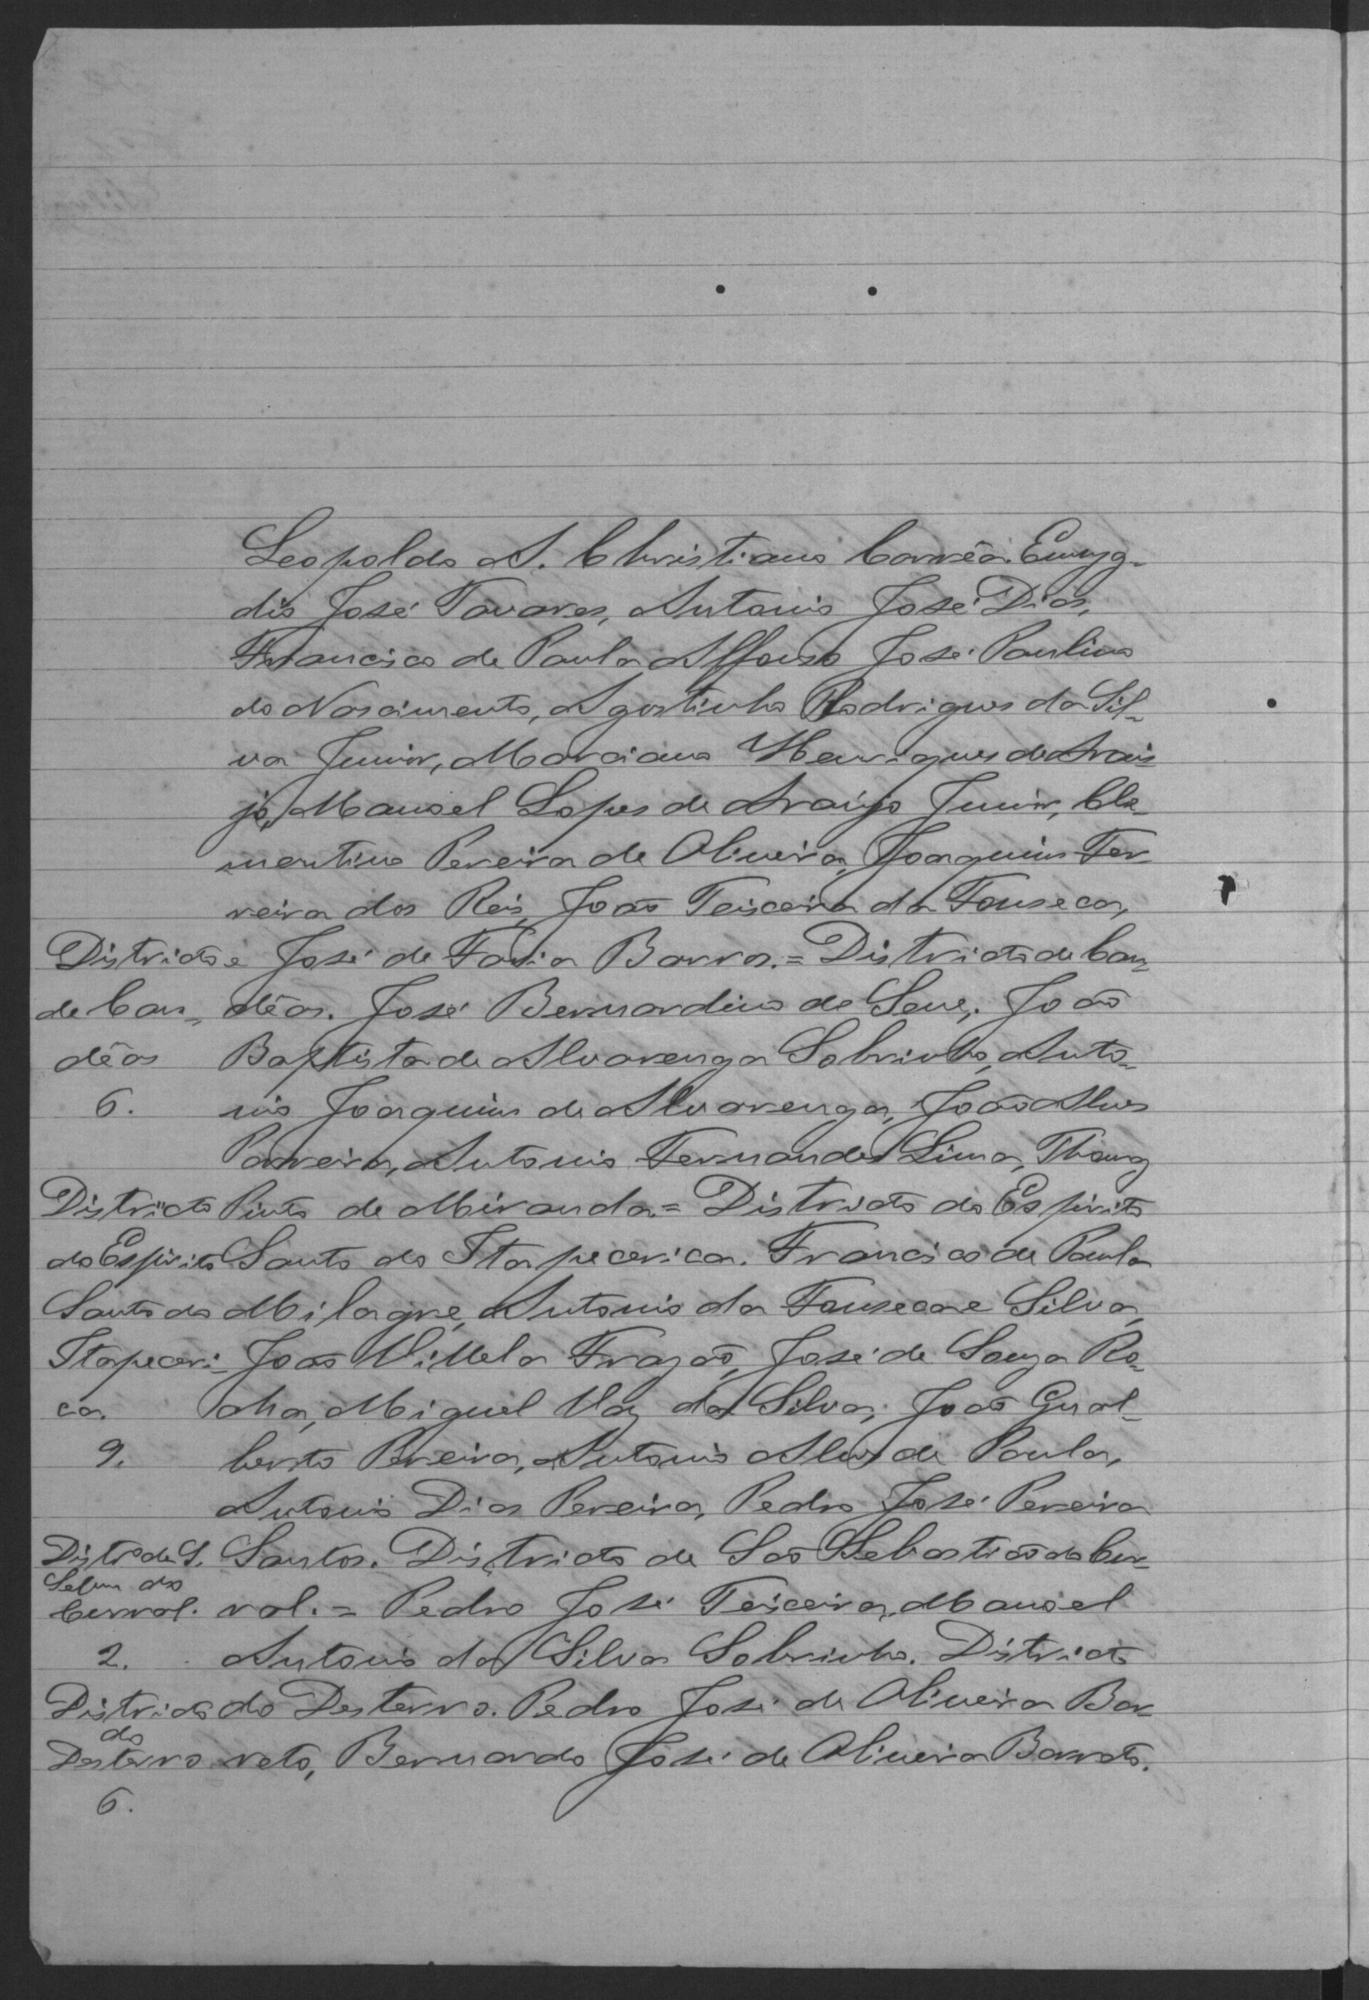 Leopoldo A. Christiano Corrêa. Emyg-
dio José Tavares, Antonio José Dias,
Francisco de Paula Affonso José Paulino
do Nascimento, Agostinho Rodrigues da Sil-
va Junior, Marciano Henriques de Arau-
jo, Manoel Lopes de Araujo Junior, Cle-
mentino Pereira de Oliveira, Joaquim Fer
reira dos Reis, João Teixeira da Fonseca,
Districto e José de Faria Barros. = Districto de Can-
de Can- dêas. José Bernardino de Sene, João
dêas Baptista de Alvarenga Sobrinho, Anto-
6. nio Joaquim de Alvarenga, João Alves
Parreira, Antonio Fernandes Lima, Thomaz
Districto Pinto de Miranda = Districto do Espirito
do Espirito Santo do Itapecerica. Francisco de Paula
Santo do Milagre, Antonio da Fonseca e Silva,
Itapeceri- João Villela Frazão, José de Souza Ro-
ca. cha, Miguel Vaz da Silva, João Gual-
9. berto Pereira, Antonio Alves de Paula,
Antonio Dias Pereira, Pedro José Pereira
Distr.º de S. Santos. Districto de São Sebastião do Cur-
Sebm do
Curral. ral. = Pedro José Teixeira, Manoel
2. Antonio da Silva Sobrinho. Districto
Districto do Desterro. Pedro José de Oliveira Bar
do
Desterro reto, Bernardo José de Oliveira Barreto.
6.